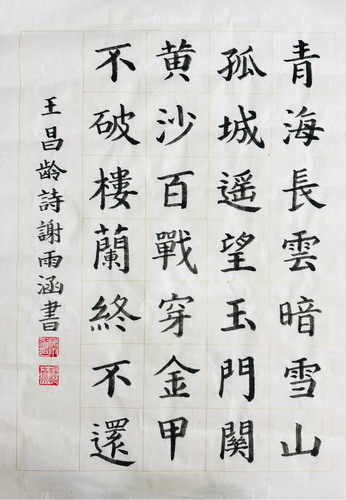 青海長雲暗雪山
孤城遥望玉門関
黄沙百戰穿金甲
不破樓蘭終不還
王昌龄詩謝雨涵書